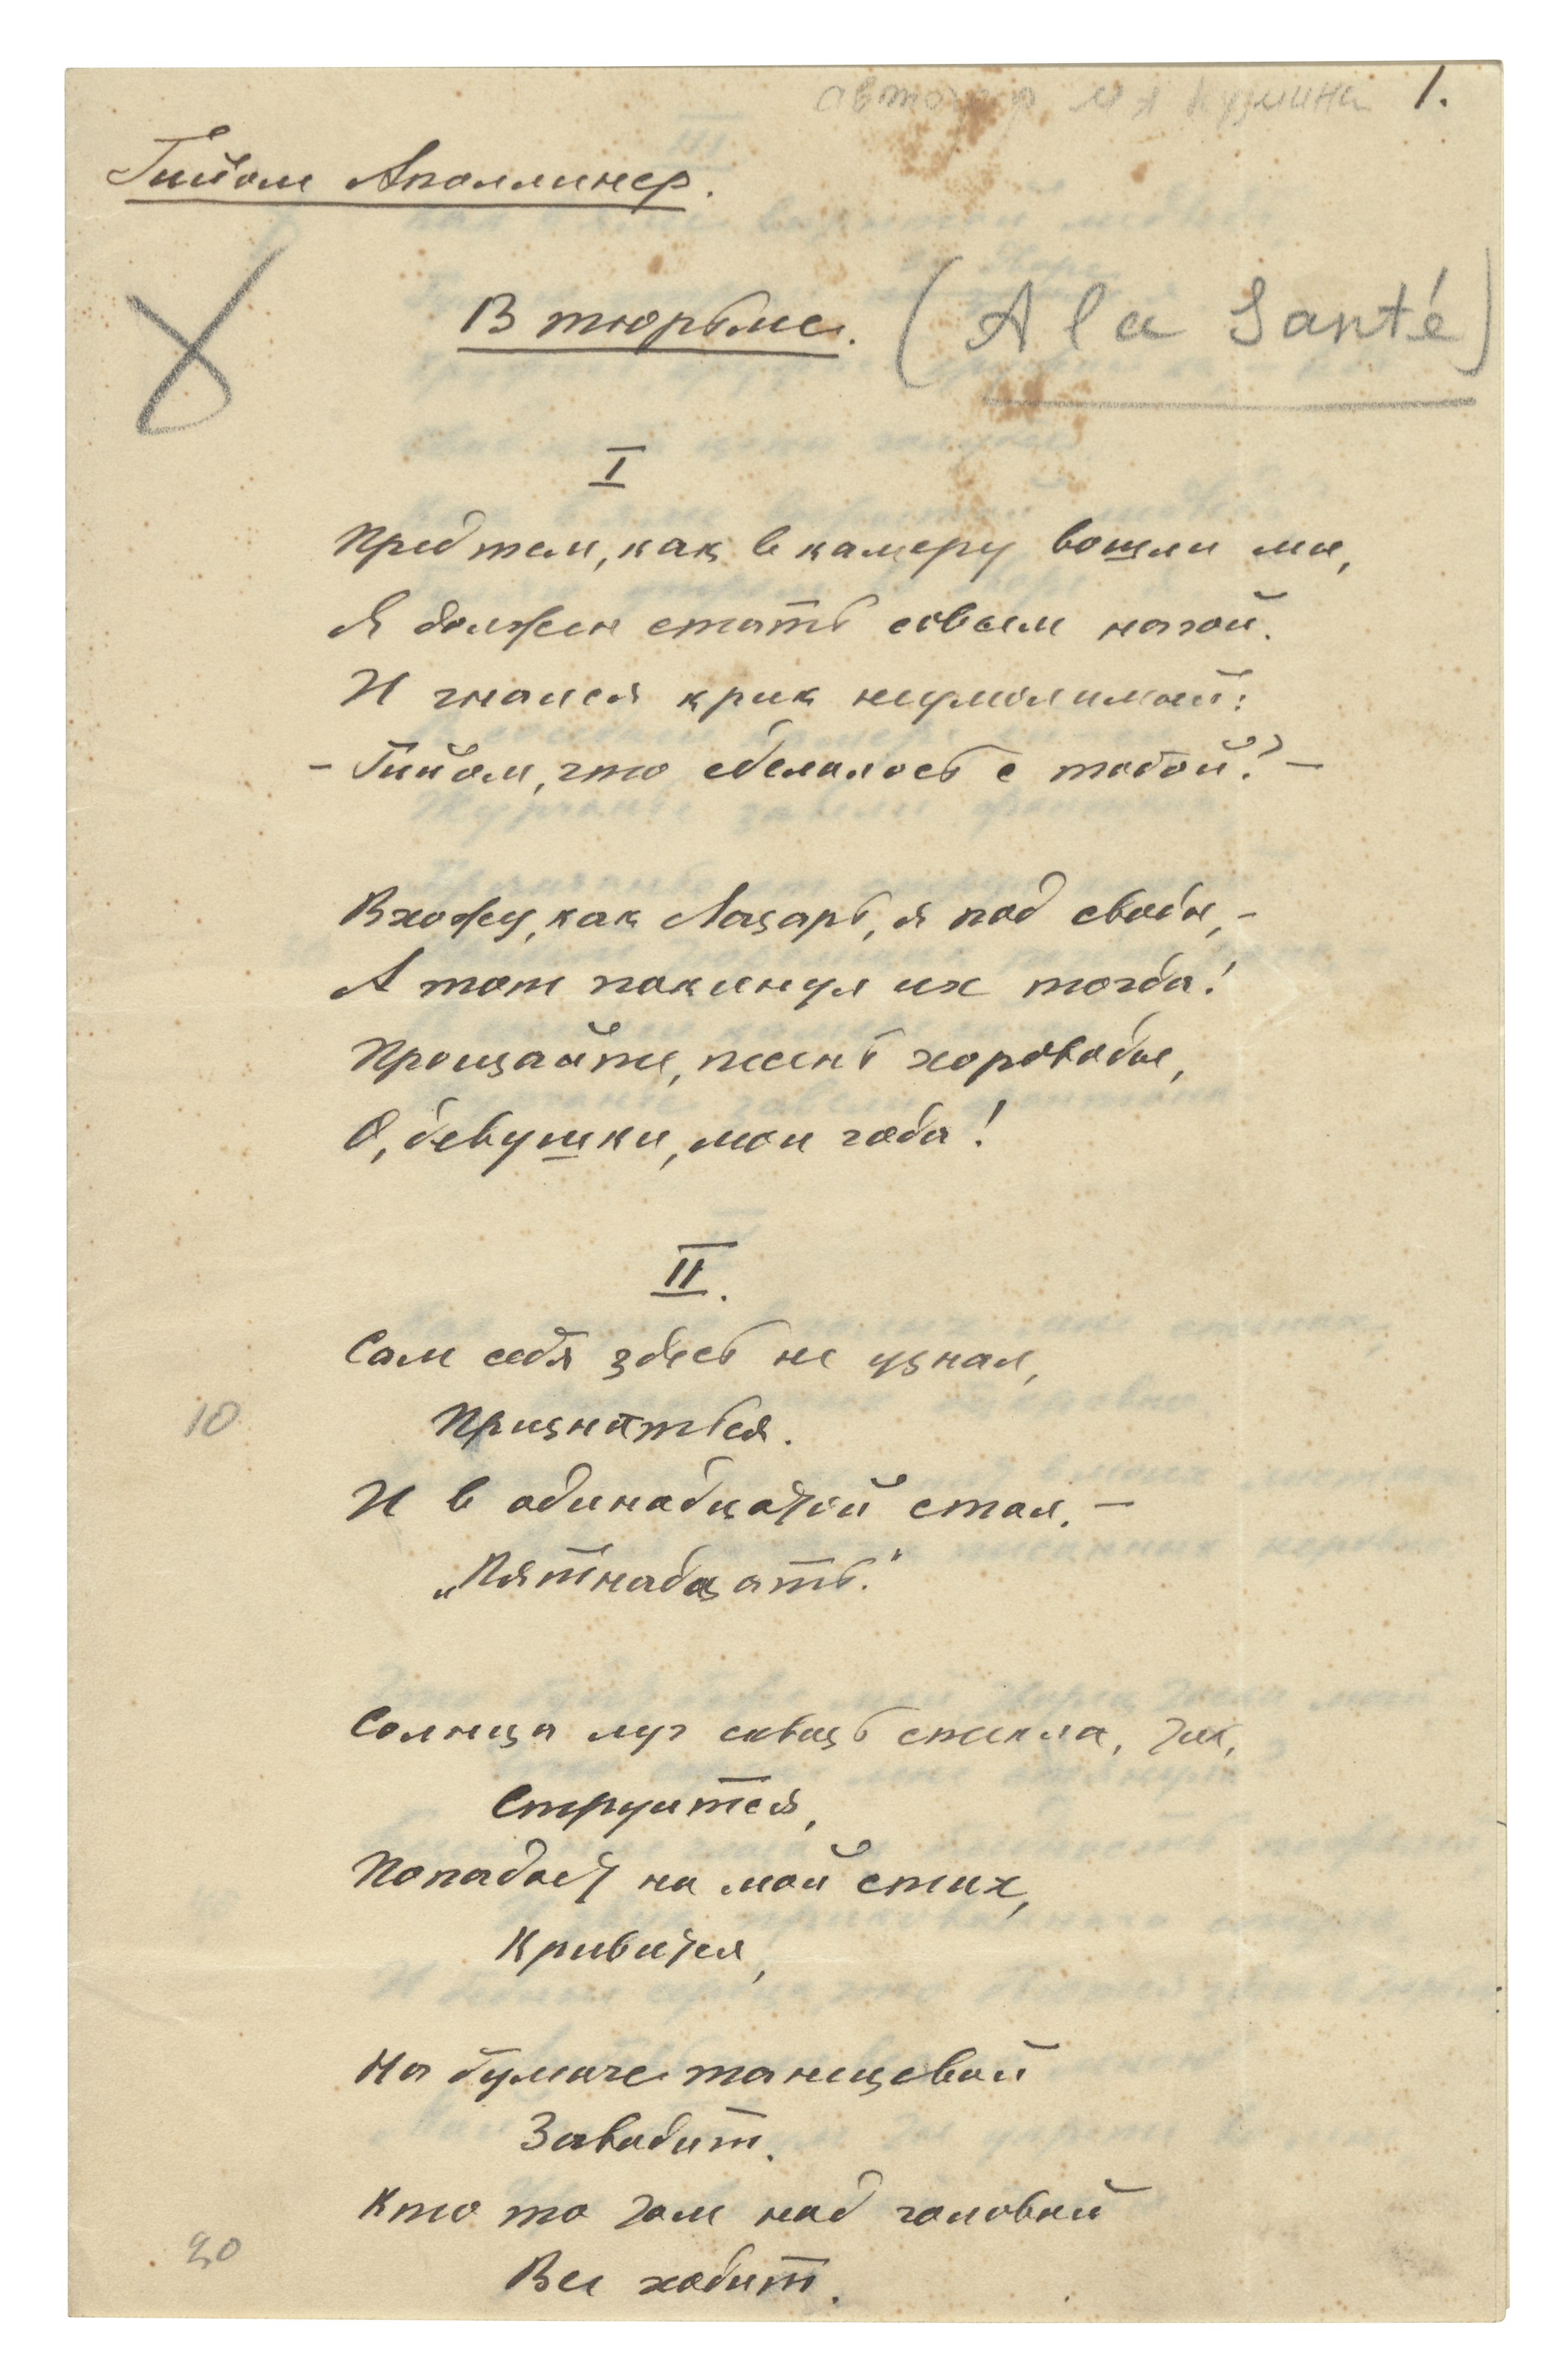 автограф М А Кузмина 1.
Гийом Аполлинер.
В тюрьме. (A la Santé)
I
Пред тем, как в камеру вошли мы,
Я должен стать совсем нагой.
И гнался крик неумолимый:
– Гийом, что сделалось с тобой? –
Вхожу, как Лазарь, я под своды, –
А тот покинул их тогда!
Прощайте, песень хороводы,
О, девушки, мои года!
II.
Сам себя здесь не узнал,
Признаться.
И в одинадцатой стал, –
„Пятнадцать."
Солнца луч сквозь стекла, тих,
Струится,
Попадает на мой стих,
Кривится,
На бумаге танцовой
Заводит.
Кто то там над головой
Все ходит.
10
20